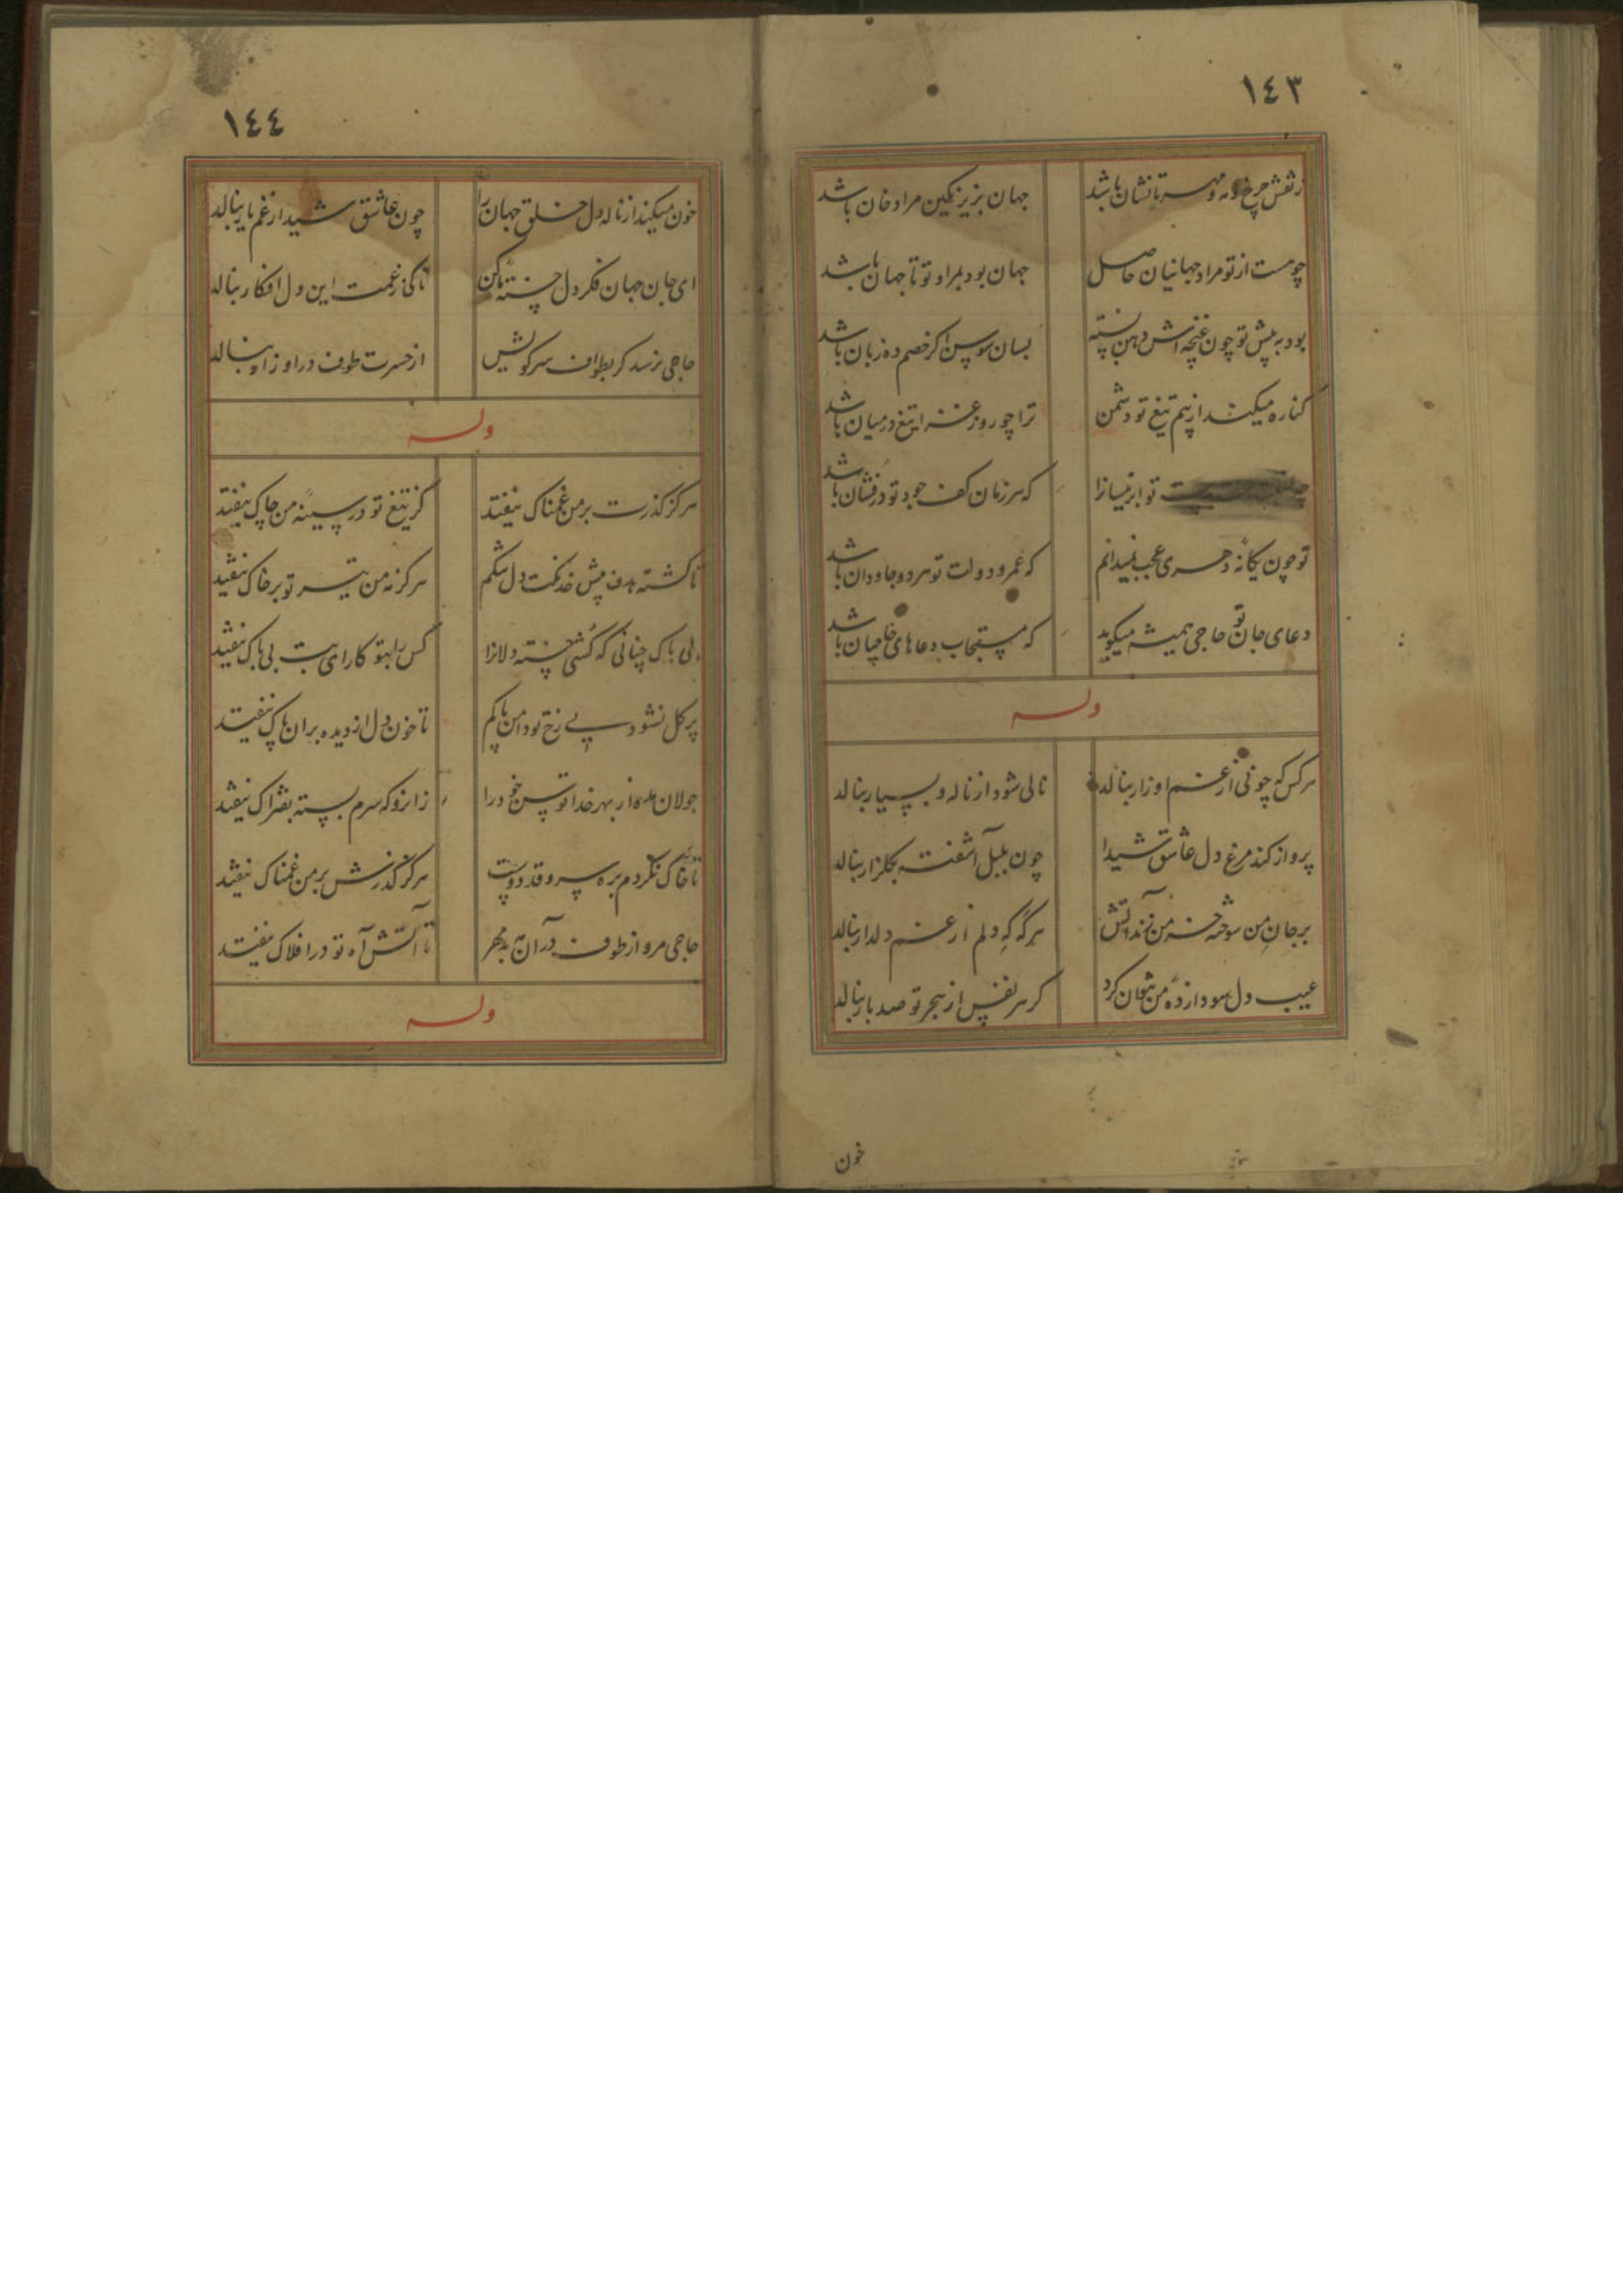 ١٤٣
ز نقش چرخ و مه و مهر تا نشان باشد جهان بزیر نکین مراد خان باشد
چو هست از تو مراد جهانیان حاصل جهان بود بمراد تو تا جهان باشد
بود به پیش تو چون غنچه اش دهن بسته بسان سوسن اکر خصم ده زبان باشد
کناره میکند از بیم تیغ تو دشمن ترا چو روز غزا تیغ در میان باشد
تو ابر نیسانرا که هر زمان کف جود تو درفشان باشد
تو چون یکانهٔ دهری عجب نمیدانم که عمر و دولت تو هر دو جاودان باشد
دعای جان تو حاجی همیشه میکوید که مستجاب دعاهای حاجیان باشد
وله
هر کس که چو نی از غم او زار بنالد نالی شود از ناله و بسیار بنالد
پرواز کند مرغ دل عاشق شیدا چون بلبل آشفته بکلزار بنالد
بر جان من سوخته خرمن زند آتش هرکه که دلم از غم دلدار بنالد
عیب دل سودازدهٔ من نتوان کرد کر هر نفس از هجر تو صد بار بنالد
خون
١٤٤
خون میکند از ناله دل خلق جهانرا چون عاشق شیدا ز غم یار بنالد
ای جان جهان فکر دل خستهٔ ما کن تا کی ز غمت این دل افکار بنالد
حاجی نرسد کر بطواف سر کویش از حسرت طوف در او زار بنالد
وله
هرکز کذرت بر من غمناک نیفتد کز تیغ تو در سینهٔ من چاک نیفتد
تا کشته هدف پیش خدنکت دل تنکم هرکز نه من تیر تو بر خاک نیفتد
بی باک چنانی که کشی خسته دلانرا کس را بتو کار ای بت بی باک نیفتد
پر کل نشود بی رخ تو دامن پاکم تا خون دل از دیده بر ان پاک نیفتد
جولان مده از بهر خدا توسن خود را زانرو که سرم بسته بفتراک نیفتد
تا خاک نکردم بره سرو قد دوست هرکز کذرش بر من غمناک نیفتد
حاجی مرو از طوف در آن مه بدمهر تا آتش آه تو در افلاک نیفتد
وله